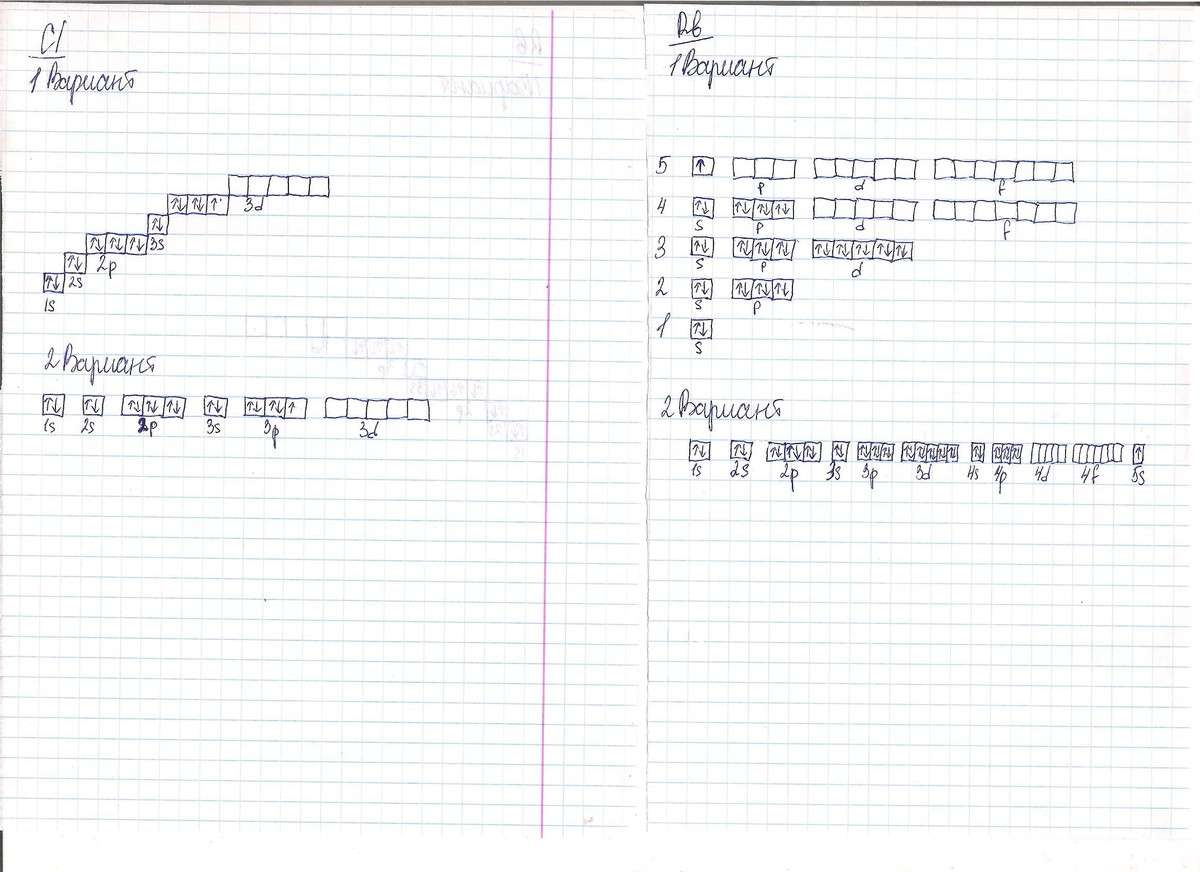 Cl
1 Вариант
3d
3s
2p
2s
1s
2 Вариант
1s 2s 2p 3s 3p 3d
Rb
1 Вариант
5
p d f
4
s p d f
3
s p d
2
s p
1
s
2 Вариант
1s 2s 2p 3s 3p 3d 4s 4p 4d 4f 5s